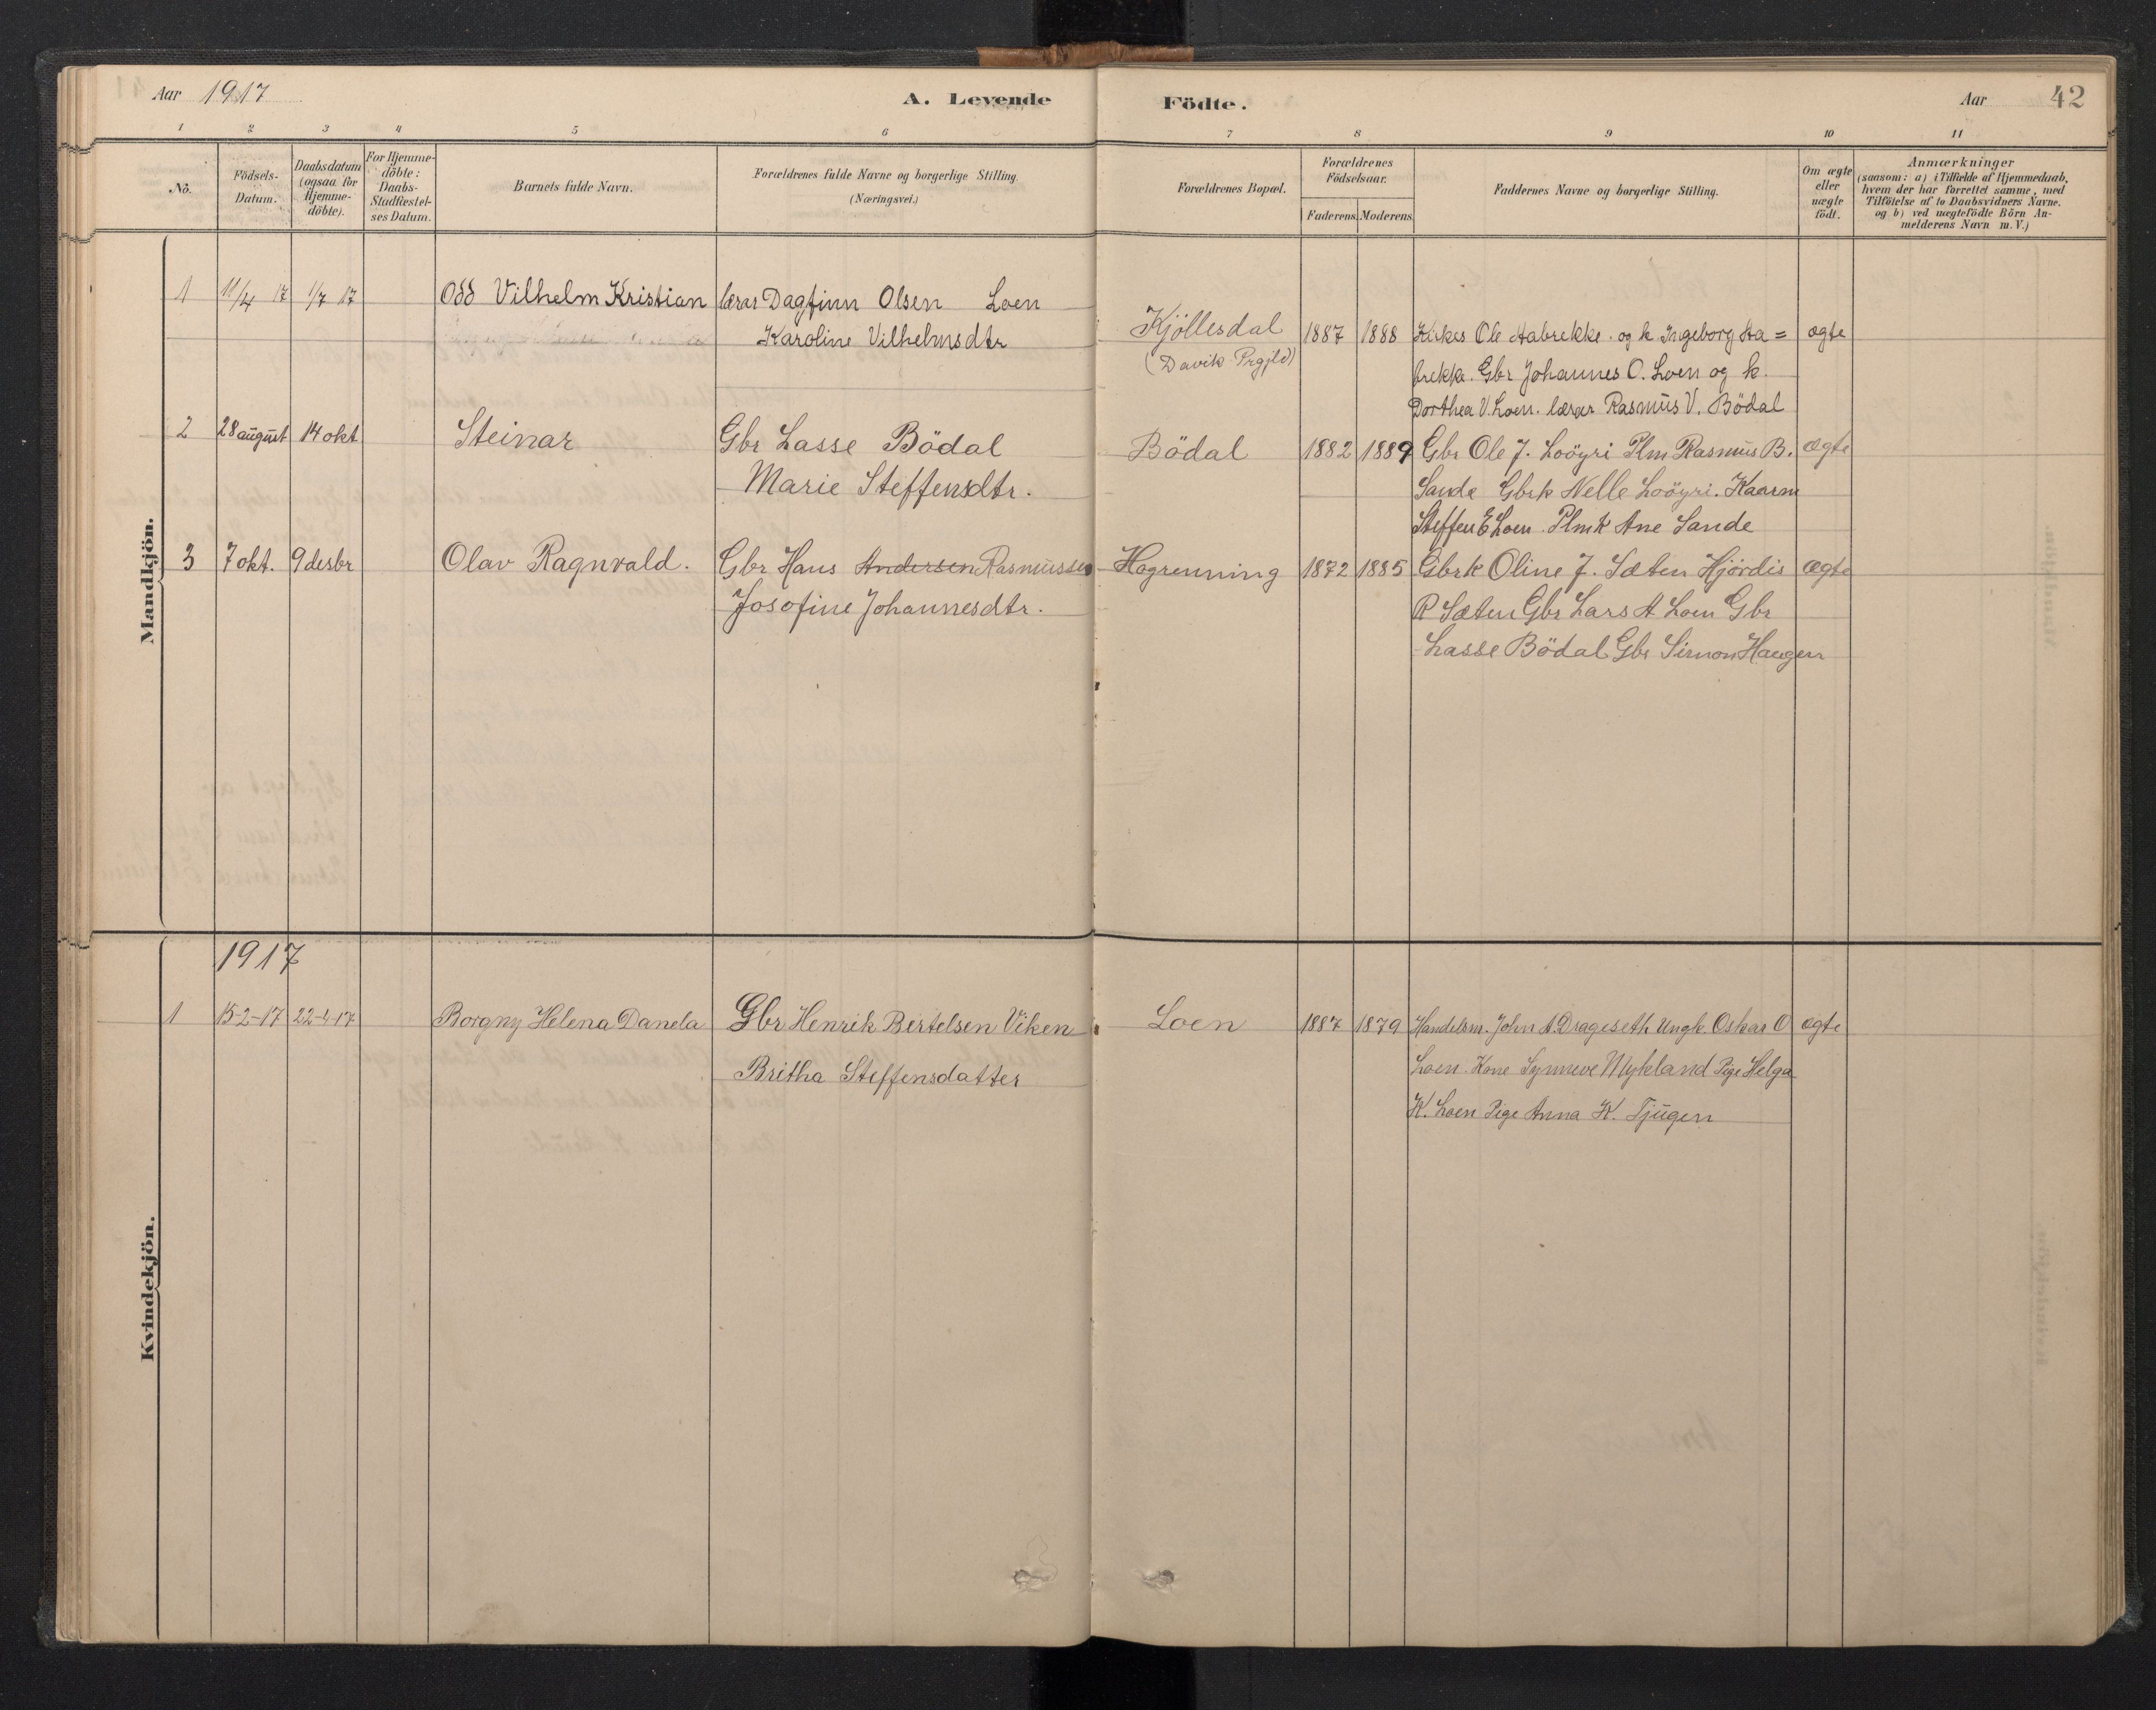 Aar 1917 A. Levende Födte. Aar 42
1 2 3 4 5 6 7 8 9 10 11
No.
Födsels-
Datum.
Daabsdatum
(ogsaa for
Hjemme-
döbte).
For Hjemme-
döbte:
Daabs-
Stadfestel-
ses Datum.
Barnets fulde Navn.
Forældrenes fulde Navne og borgerlige Stilling.
(Næringsvei.)
Forældrenes Bopæl.
Forældrenes
Födselsaar.
Faderens. Moderens.
Faddernes Navne og borgerlige Stilling.
Om ægte
eller
uægte
födt.
Anmærkninger
(saasom: a) i Tilfælde af Hjemmedaab,
hvem der har forrettet samme, med
Tilföielse af to Daabsvidners Navne.
og b) ved uægtefödte Börn An-
melderens Navn m. V.)
Mandkjön.
1 11/4 17 1/7 17 Odd Vilhelm Kristian lærar Dagfinn Olsen Loen
Karoline Vilhelmsdtr
Kjöllesdal 1887 1888 Kirkes Ole Aabrekke. og k. Ingeborg Aa= ægte
(Davik Prgjld) brekke. Gbr Johannes O. Loen og k.
Dorthea V. Loen. lærar Rasmus V. Bödal
2 28 august 14 okt Steinar Gbr Lasse Bödal
Marie Steffensdtr.
Bödal 1882 1889 Gbr Ole J. Loöyri Plm Rasmus B. ægte
Sande Gbrk Nelle Loöyri. Kaarm
Steffen E Loen. Plmk Ane Sande
3 7 okt. 9 desbr Olav Ragnvald. Gbr Hans Andersen Rasmussen
Josofine Johannesdtr.
Hogrenning 1872 1885 Gbrk Oline J. Sæten Hjördis ægte
R Sæten Gbr Lars A Loen Gbr
Lasse Bödal Gbr Simon Haugen
Kvindekjön.
1917
1 15-2-17 22-4-17 Borgny Helena Danela Gbr Henrik Bertelsen Viken
Britha Steffensdatter
Loen 1887 1879 Handelsm. John A. Drageseth Ungk. Oskar O ægte
Loen. Kone Synneve Mykland Pige Helga
K. Loen Pige Anna K. Tjugen